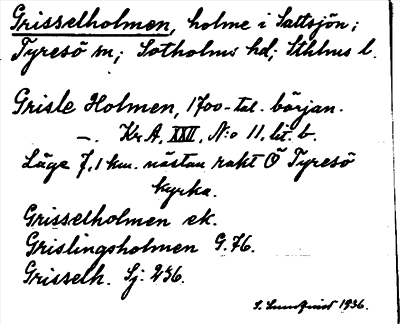 Grisselholmen, holme i Saltsjön;
Tyresö sn; Sotholms hd; Sthlms l.
Grisle Holmen, 1700-tal. början.
—. Kr A, XXII, N:o 11, lit. b.
Läge 7,1 km. nästan rakt Ö Tyresö
kyrka.
Grisselholmen ek.
Grislingsholmen G. 76.
Grisselh. Sj: 236.
1936.